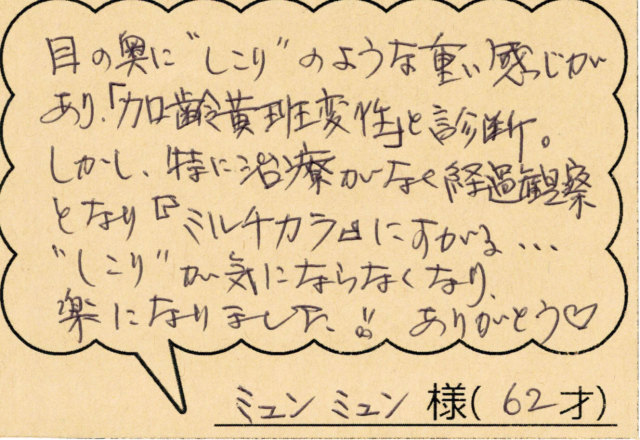 目の奥に"しこり"のような重い感じが
あり、「加齢黄班変性」と診断。
しかし、特に治療がなく経過観察
となり『ミルチカラ』にすがる...
"しこり"が気にならなくなり、
楽になりました!! ありがとう♡
ミュンミュン 様(62才)